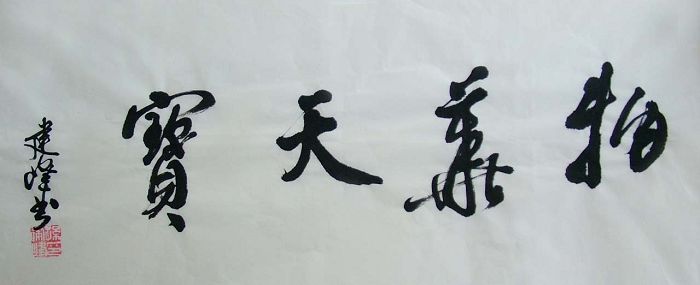 物華天寶
建峰书